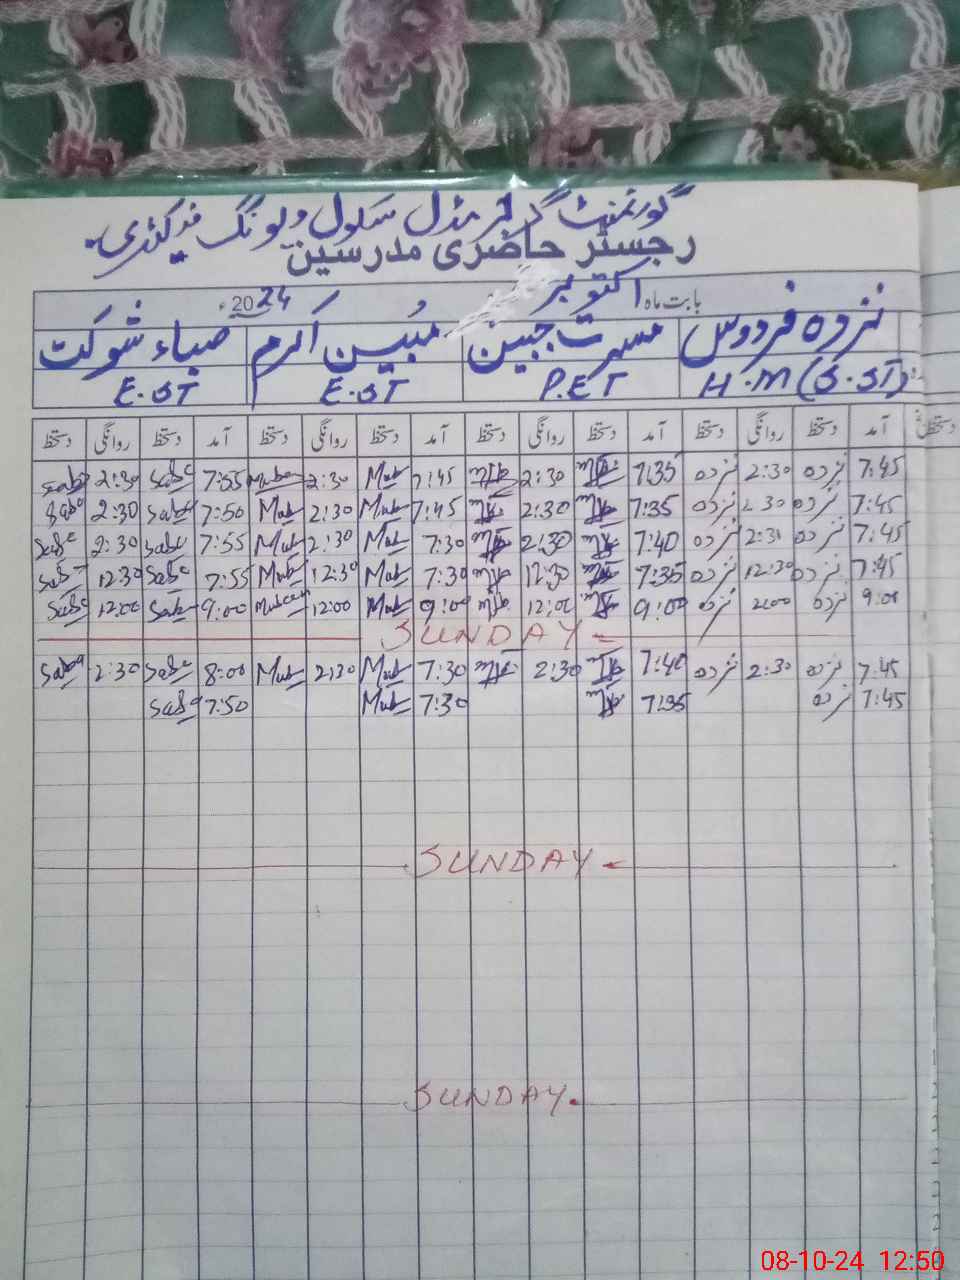 گورنمنٹ گرلز مڈل سکول
رجسٹر حاضری مدرسین
بابت ماہ اکتوبر 2024ء
نزدہ فردوس مسرت جبین مبین اکرم صباء شوکت
H.M (آی.ی) P.E.T E.ST E.ST
دستخط آمد دستخط روانگی دستخط آمد دستخط روانگی دستخط آمد دستخط روانگی دستخط آمد دستخط روانگی دستخط
7:45 نزدہ 2:30 نزدہ 7:35 2:30 7:45 Mub 2:30 Mubeen 7:55 Saba 2:30 Saba
7:45 نزدہ 2:30 نزدہ 7:35 2:30 7:45 Mub 2:30 Mub 7:50 Saba 2:30 Saba
7:45 نزدہ 2:30 نزدہ 7:40 2:30 7:30 Mub 2:30 Mub 7:55 Saba 2:30 Saba
7:45 نزدہ 12:30 نزدہ 7:35 12:30 7:30 Mub 12:30 Mub 7:55 Saba 12:30 Saba
9:00 نزدہ 2:00 نزدہ 9:00 12:00 9:00 Mub 12:00 Mubeen 9:00 Saba 12:00 Saba
SUNDAY
7:45 نزدہ 2:30 نزدہ 7:40 2:30 7:30 Mub 2:30 Mub 8:00 Saba 2:30 Saba
7:45 نزدہ 7:35 7:30 Mub 7:50 Saba
SUNDAY
SUNDAY.
08-10-24 12:50